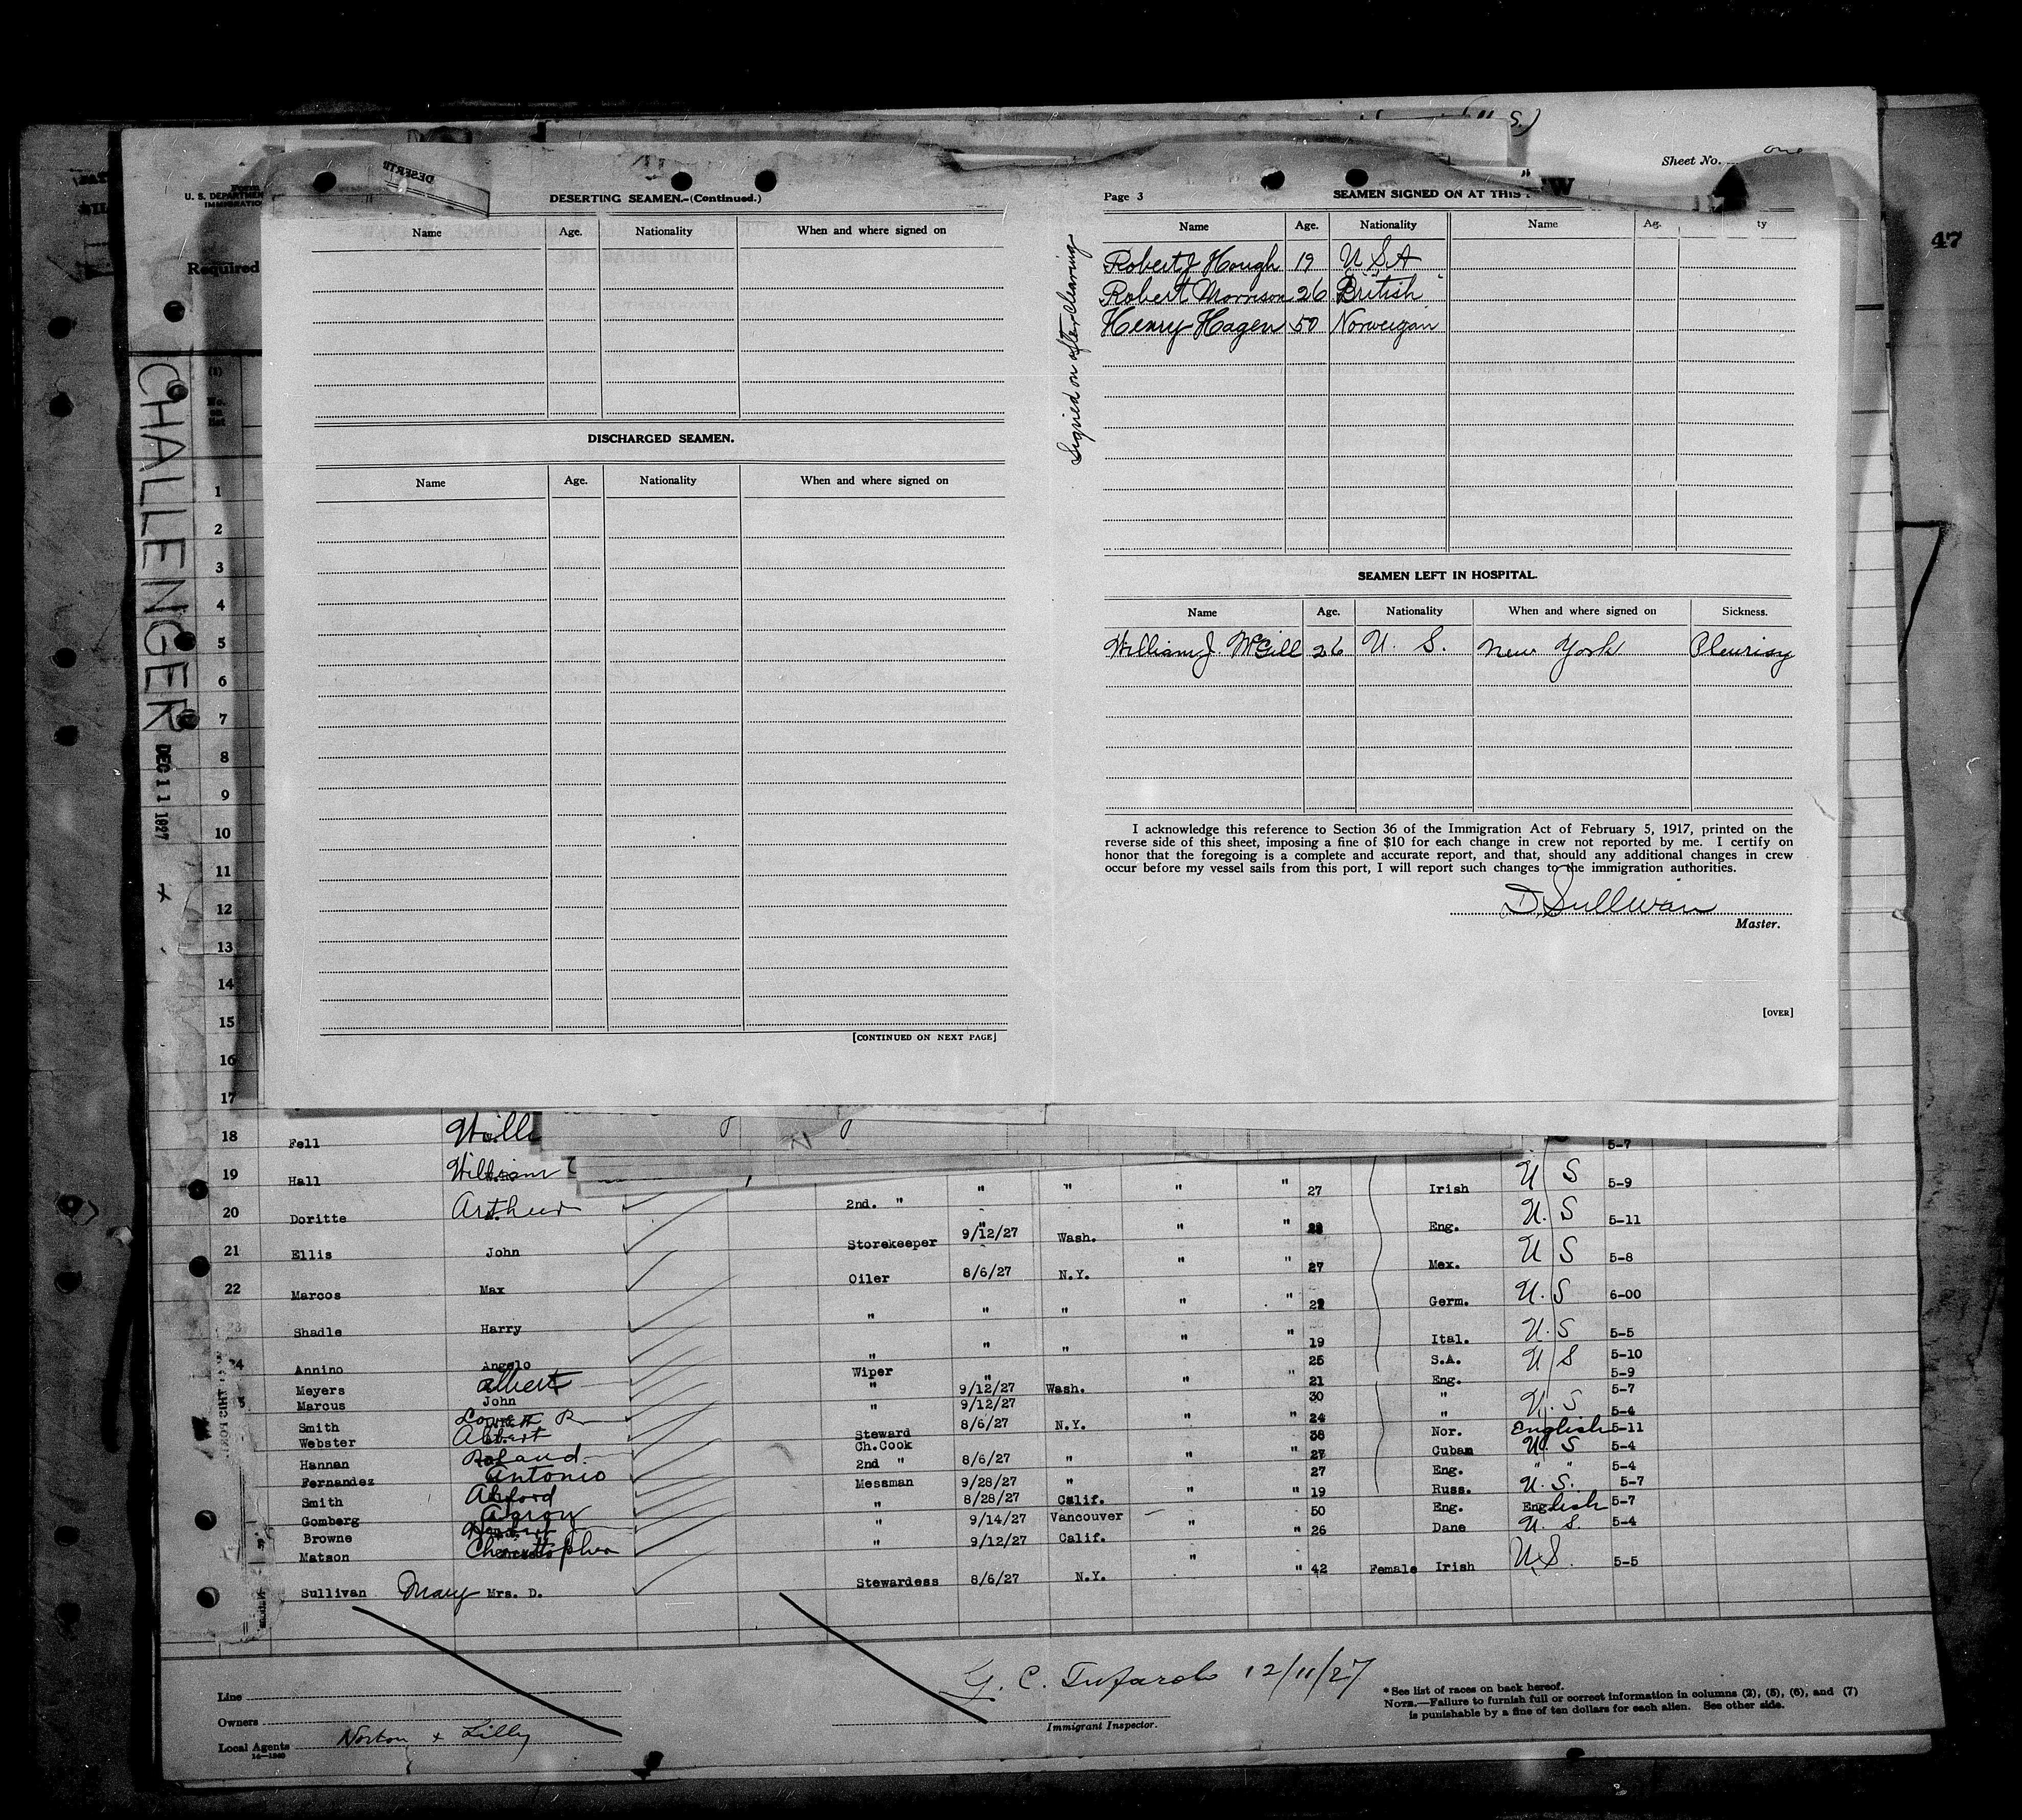 Sheet No. one
47
Form
U. S. DEPARTMENT
IMMIGRATIO
Required
DESERTING SEAMEN.-(Continued.)
Name Age. Nationality When and where signed on
DISCHARGED SEAMEN.
Name Age. Nationality When and where signed on
[CONTINUED ON NEXT PAGE]
Page 3 SEAMEN SIGNED ON AT THIS
Name Age. Nationality Name Ag. ty
Robert J Hough 19 U S A
Robert Morrison 26 British
Henry Hagen 50 Norweigan
Signed on after clearing
SEAMEN LEFT IN HOSPITAL.
Name Age. Nationality When and where signed on Sickness.
William J. McGill 26 U. S. New York Pleurisy
I acknowledge this reference to Section 36 of the Immigration Act of February 5, 1917, printed on the
reverse side of this sheet, imposing a fine of $10 for each change in crew not reported by me. I certify on
honor that the foregoing is a complete and accurate report, and that, should any additional changes in crew
occur before my vessel sails from this port, I will report such changes to the immigration authorities.
D. Sullivan
Master.
[OVER]
CHALLENGER
DEC 11 1927
(1)
No.
on
list
1
2
3
4
5
6
7
8
9
10
11
12
13
14
15
16
17
18 Fell Willi 5-7
19 Hall William " " " " 27 Irish U S 5-9
20 Doritte Arthur 2nd. " " Eng. U. S 5-11
21 Ellis John Storekeeper 9/12/27 Wash. " " 27 Mex. U S 5-8
22 Marcos Max Oiler 8/6/27 N.Y. " " Germ. U. S 6-00
23 Shadle Harry " " " " " 19 Ital. U. S 5-5
24 Annino Angelo " " " " " 25 S.A. U S 5-10
Meyers Albert Wiper " " 21 Eng. 5-9
Marcus John " 9/12/27 Wash. " 30 " U. S 5-7
Smith " 9/12/27 " 24 " 5-4
Webster Albert Steward 8/6/27 N.Y. " 38 Nor. English 5-11
Hannan Roland Ch.Cook " 27 Cuban U. S 5-4
Fernandez Antonio 2nd " 8/6/27 " " 27 Eng. " " 5-4
Smith Messman 9/28/27 " " 19 Russ. U. S. 5-7
Gomberg " 8/28/27 Calif. 50 Eng. English 5-7
Browne " 9/14/27 Vancouver " 26 Dane U. S. 5-4
Matson Christopher " 9/12/27 Calif. "
Sullivan Mary Mrs. D. Stewardess 8/6/27 N.Y. " 42 Female Irish U.S. 5-5
Line
Owners
Local Agents Norton & Lilly
14—1240
12/11/27
Immigrant Inspector.
* See list of races on back hereof.
NOTE.—Failure to furnish full or correct information in columns (2), (5), (6), and (7)
is punishable by a fine of ten dollars for each alien. See other side.